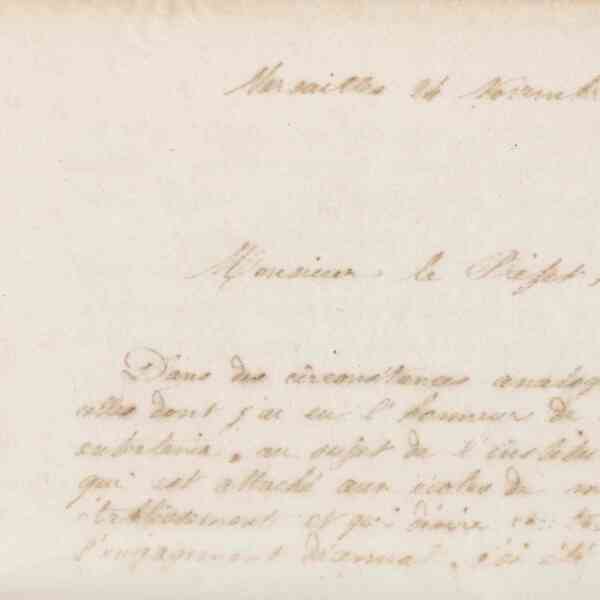 Versailles 24 Novemb
Monsieur le Préfet,
Dans des circonstances analog
celles dont j'ai eu l'honneur de
entretenir, au sujet de l'institu
qui est attaché aux écoles de m
établissement et qui désire
l'engagement décennal, j'ai été